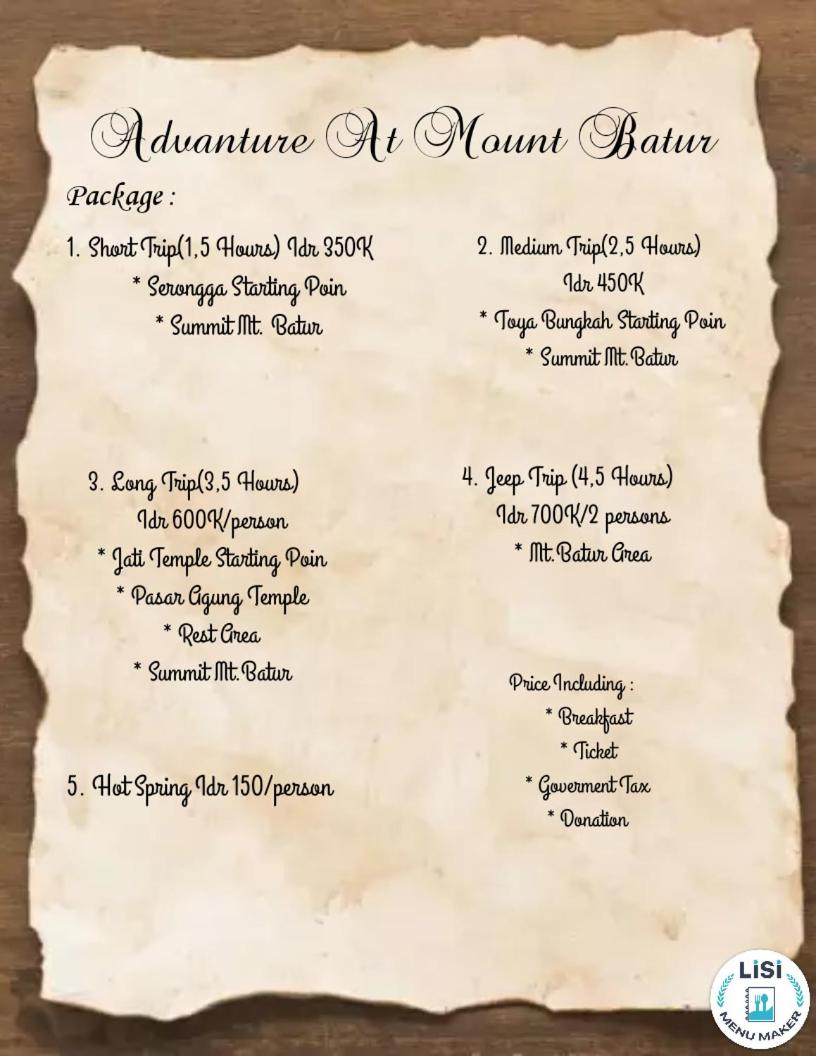 Advanture At Mount Batur
Package :
1. Short Trip(1,5 Hours) Idr 350K
* Serongga Starting Poin
* Summit Mt. Batur
2. Medium Trip(2,5 Hours)
Idr 450K
* Toya Bungkah Starting Poin
* Summit Mt.Batur
3. Long Trip(3,5 Hours)
Idr 600K/person
* Jati Temple Starting Poin
* Pasar Agung Temple
* Rest Area
* Summit Mt.Batur
4. Jeep Trip (4,5 Hours)
Idr 700K/2 persons
* Mt.Batur Area
5. Hot Spring Idr 150/person
Price Including :
* Breakfast
* Ticket
* Goverment Tax
* Donation
LiSi
MENU MAKER